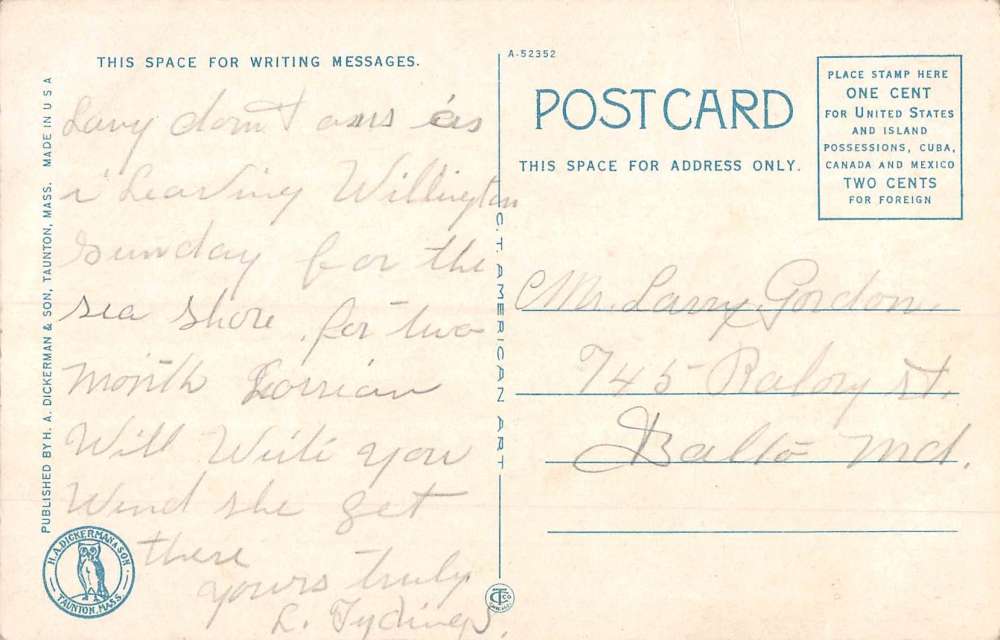 THIS SPACE FOR WRITING MESSAGES.
Lary don't ans as
i Leaving Willington
Sunday for the
sea shore. for two
month Lorrian
Will Write you
Wend she get
there
yours truly
L. Tydings.
PUBLISHED BY H. A. DICKERMAN & SON, TAUNTON, MASS. MADE IN U S A
H.A. DICKERMAN & SON
TAUNTON, MASS.
C. T. AMERICAN ART
A-52352
POST CARD
THIS SPACE FOR ADDRESS ONLY.
PLACE STAMP HERE
ONE CENT
FOR UNITED STATES
AND ISLAND
POSSESSIONS, CUBA,
CANADA AND MEXICO
TWO CENTS
FOR FOREIGN
Mr. Larry Gordon.
745 st.
Balto Md.